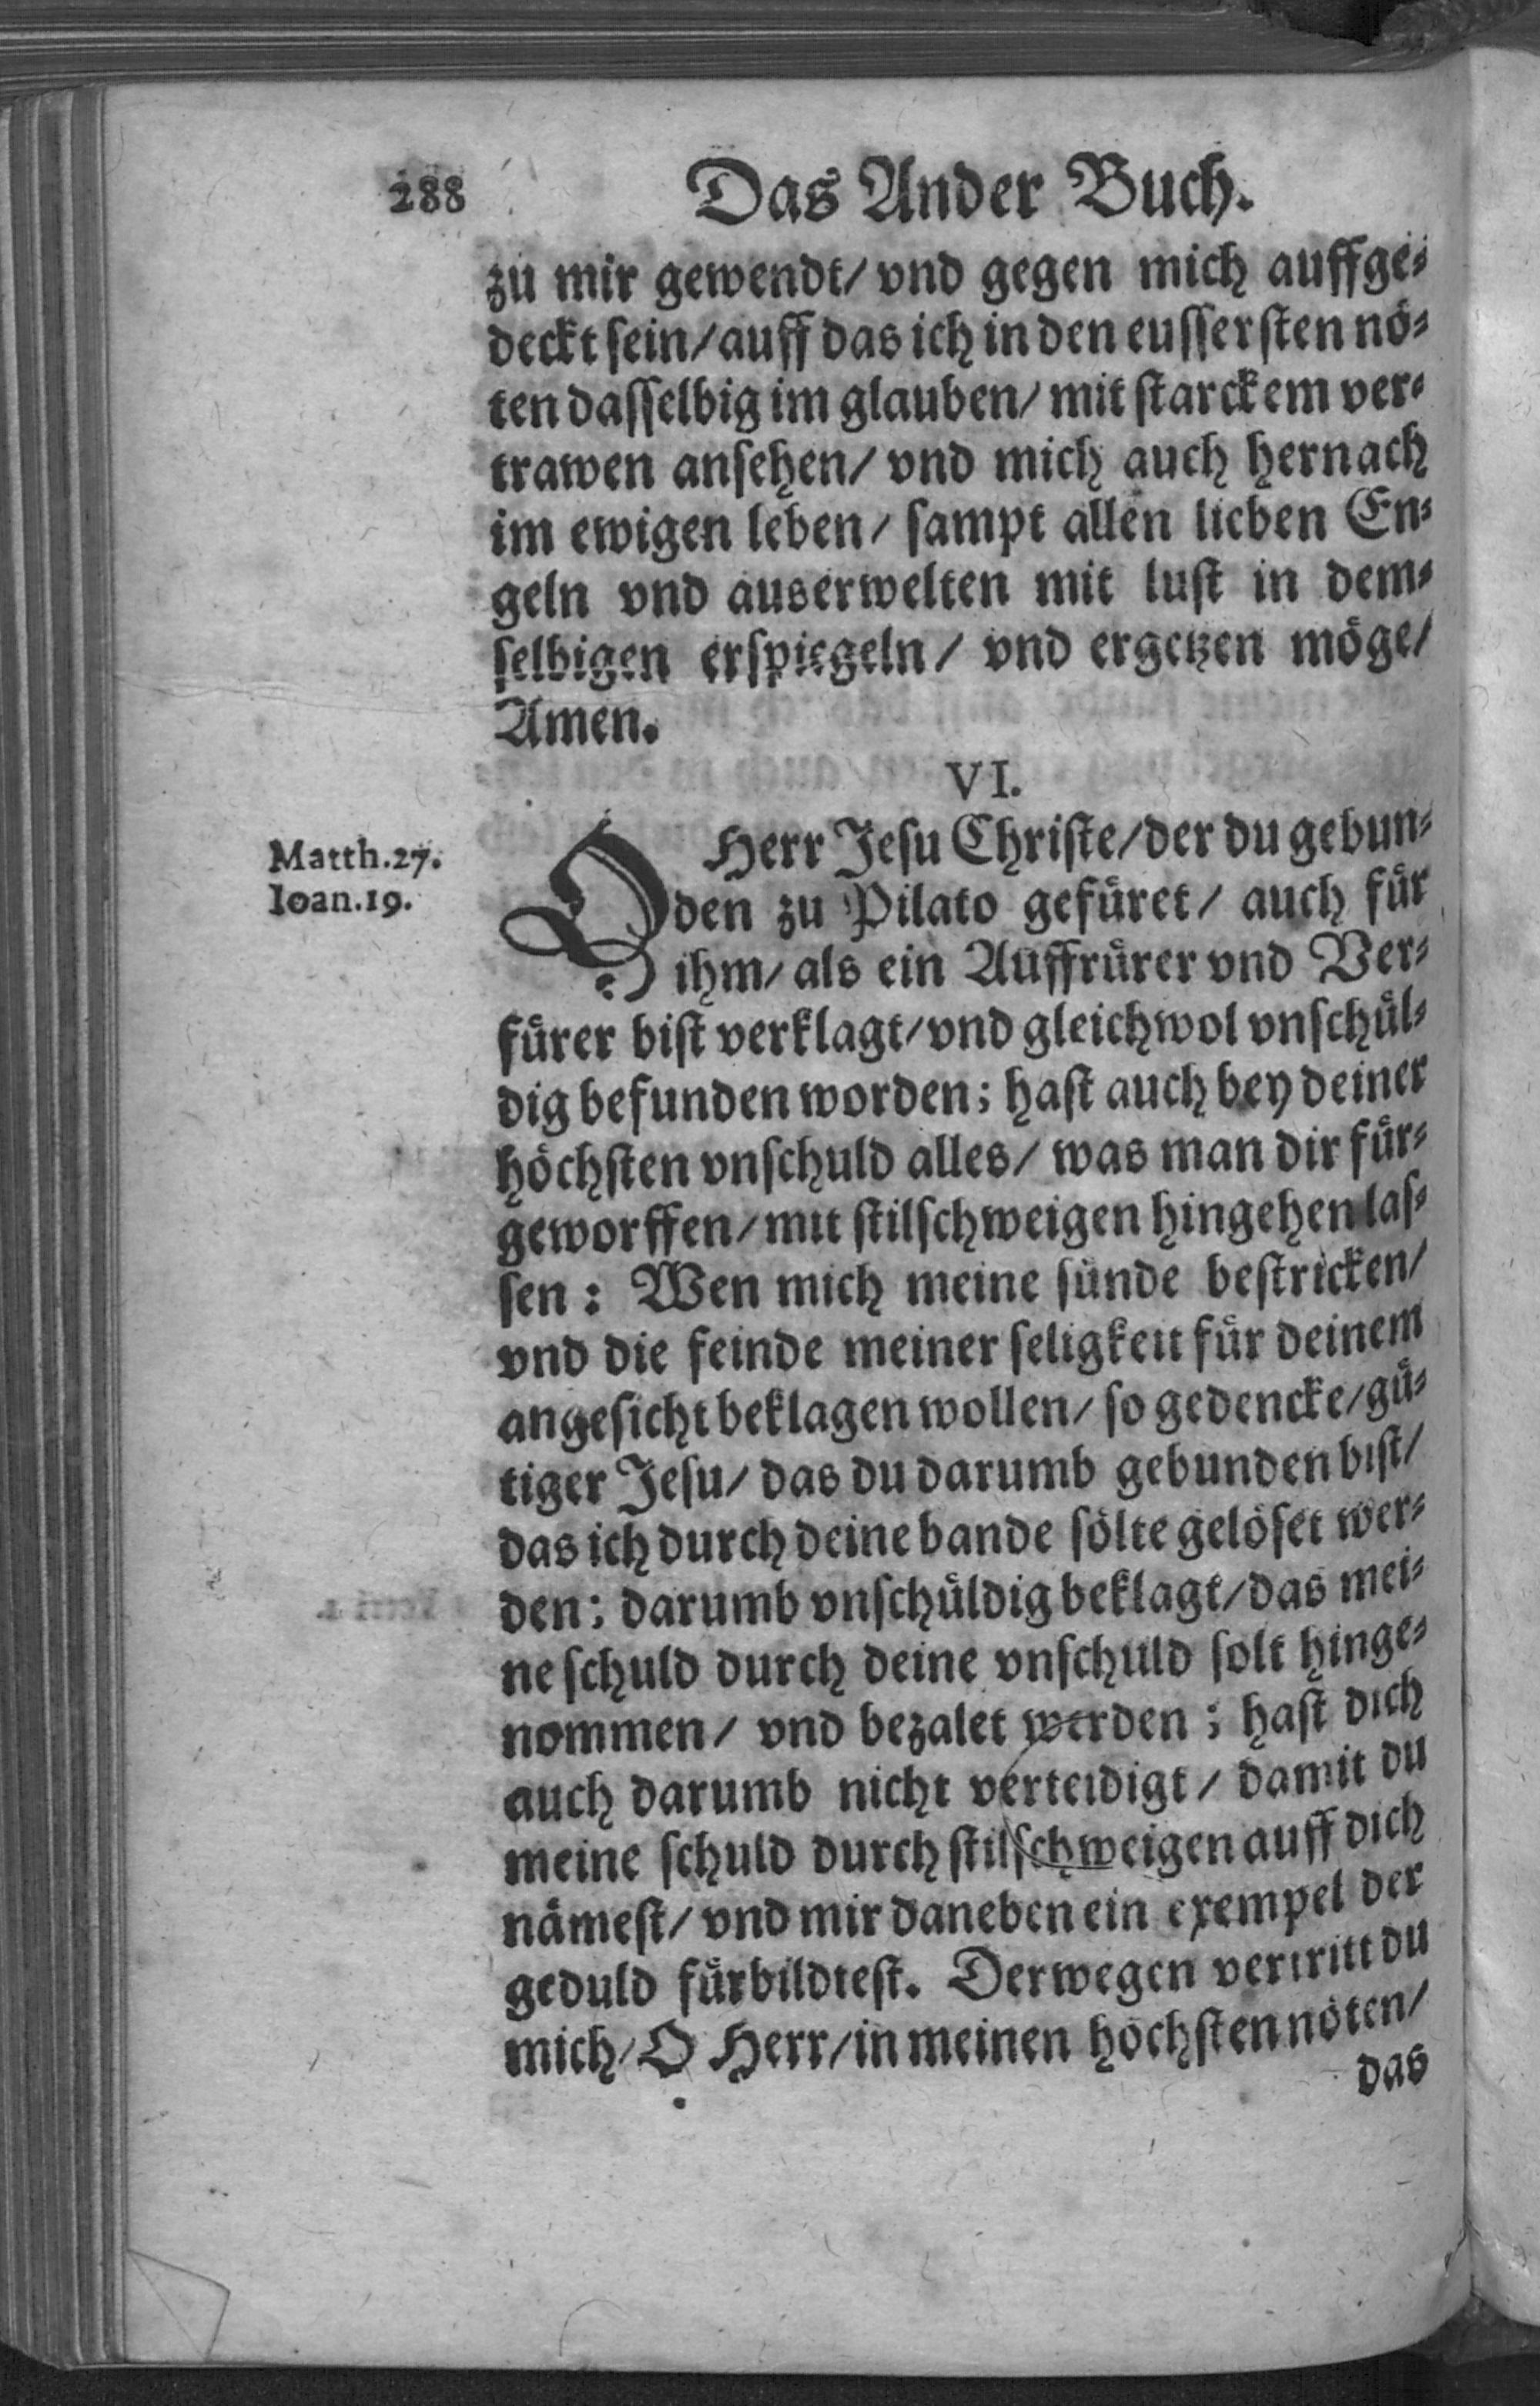 288 Das Ander Buch.
zu mir gewendt/ vnd gegen mich auffge-
deckt sein/ auff das ich in den eussersten nö-
ten dasselbig im glauben/ mit starckem ver-
trawen ansehen/ vnd mich auch hernach
im ewigen leben/ sampt allen lieben En-
geln vnd auserwelten mit lust in dem-
selbigen erspiegeln/ vnd ergetzen möge/
Amen.
VI.
Matth.27.
Ioan.19.
O Herr Jesu Christe/ der du gebun-
den zu Pilato gefüret/ auch für
ihm/ als ein Auffrürer vnd Ver-
fürer bist verklagt/ vnd gleichwol vnschül-
dig befunden worden; hast auch bey deiner
höchsten vnschuld alles/ was man dir für-
geworffen/ mit stilschweigen hingehen las-
sen: Wen mich meine sünde bestricken/
vnd die feinde meiner seligkeit für deinem
angesicht beklagen wollen/ so gedencke/ gü-
tiger Jesu/ das du darumb gebunden bist/
das ich durch deine bande sölte gelöset wer-
den; darumb vnschüldig beklagt/ das mei-
ne schuld durch deine vnschuld solt hinge-
nommen/ vnd bezalet werden; hast dich
auch darumb nicht verteidigt/ damit du
meine schuld durch stilschweigen auff dich
nämest/ vnd mir daneben ein exempel der
geduld fürbildtest. Derwegen vertritt du
mich/ O Herr/ in meinen höchsten nöten/
das